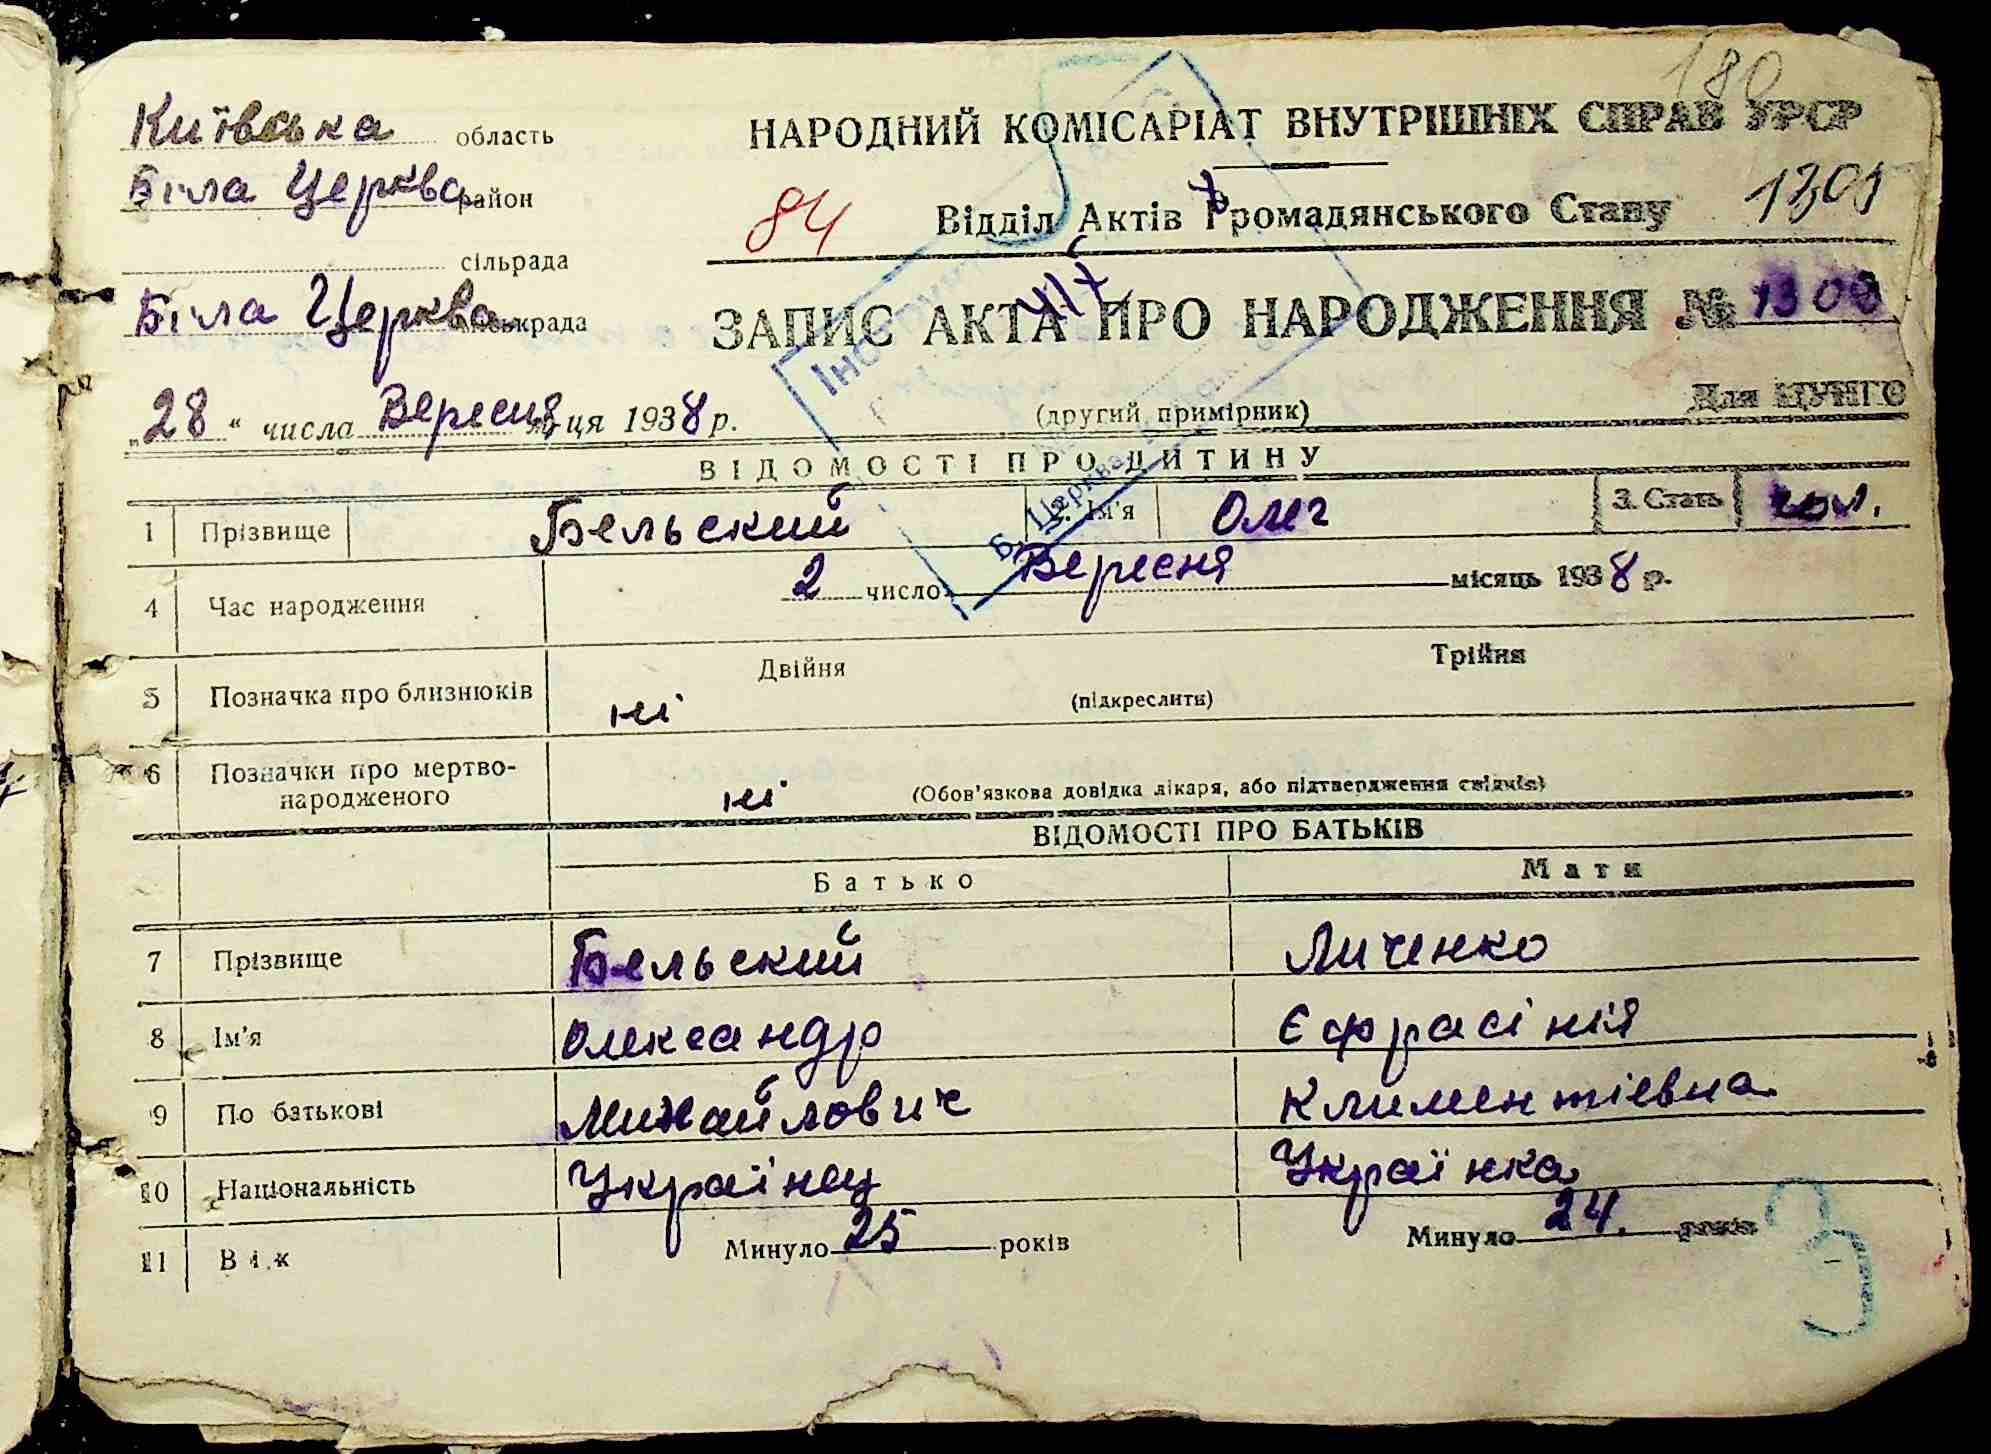 180
Київська область
НАРОДНИЙ КОМІСАРІАТ ВНУТРІШНІХ СПРАВ УРСР
Біла Церква район
84 Відділ Актів Громадянського Стану 1301
сільрада
Біла Церква міськрада
ЗАПИС АКТА ПРО НАРОДЖЕННЯ № 1300
„28“ числа Вересня місяця 1938 р. (другий примірник) Для ЦУНГО
ВІДОМОСТІ ПРО ДИТИНУ
1 Прізвище Бельский 2. Ім'я Олег 3. Стать чол.
4 Час народження 2 число Вересня місяць 1938 р.
5 Позначка про близнюків ні Двійня (підкреслити) Трійня
6 Позначки про мертво-
народженого ні (Обов'язкова довідка лікаря, або підтвердження свідків)
ВІДОМОСТІ ПРО БАТЬКІВ
Батько Мати
7 Прізвище Бельский Личенко
8 Ім'я Олександр Єфрасінія
9 По батькові Михайлович Климентіевна
10 Національність Українец Українка
11 Вік Минуло 25 років Минуло 24. років
3